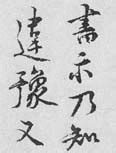 書示乃知
違豫又